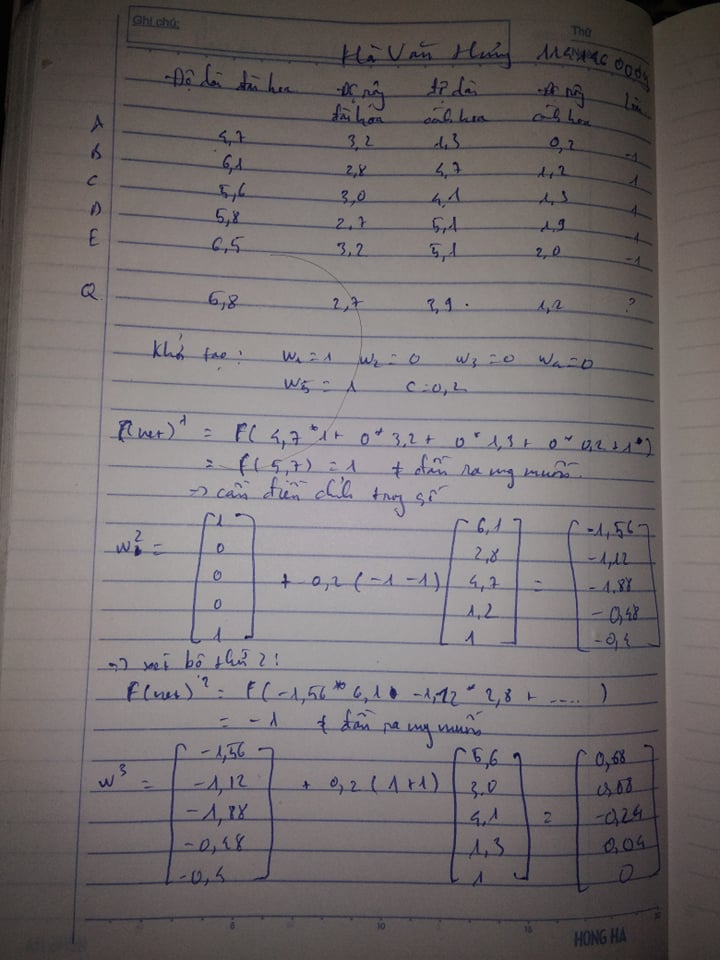 Ghi chú:
Thứ
Hà Văn Hưng
Độ dài đài hoa Độ rộng đài hoa độ dài cánh hoa Độ rộng cánh hoa
A 4,7 3,2 1,3 0,2 -1
B 6,1 2,8 4,7 1,2 1
C 5,6 3,0 4,1 1,3 1
D 5,8 2,7 5,1 1,9 -1
E 6,5 3,2 5,1 2,0 -1
Q 5,8 2,7 3,9 . 1,2 ?
Khởi tạo : w₁ = 1 w₂ = 0 w₃ = 0 w₄ = 0
w₅ = 1 c = 0,2
F(net)¹ = F( 4,7 * 1 + 0 * 3,2 + 0 * 1,3 + 0 * 0,2 + 1 * )
= F( 5,7 ) = 1 ≠ đầu ra mg muốn.
-> cần điều chỉnh trọng số
w² = [ 1 0 0 0 1 ] + 0,2 ( -1 -1 ) [ 6,1 2,8 4,7 1,2 1 ] = [ -1,56 -1,12 -1,88 -0,48 -0,4 ]
-> xét bộ thứ 2 :
F(net)² = F( -1,56 * 6,1 -1,12 * 2,8 + .... )
= -1 ≠ đầu ra mg muốn
w³ = [ -1,56 -1,12 -1,88 -0,48 -0,4 ] + 0,2 ( 1+1 ) [ 5,6 3,0 4,1 1,3 1 ] = [ 0,68 0,08 -0,24 0,04 0 ]
5 10 15
HONG HA